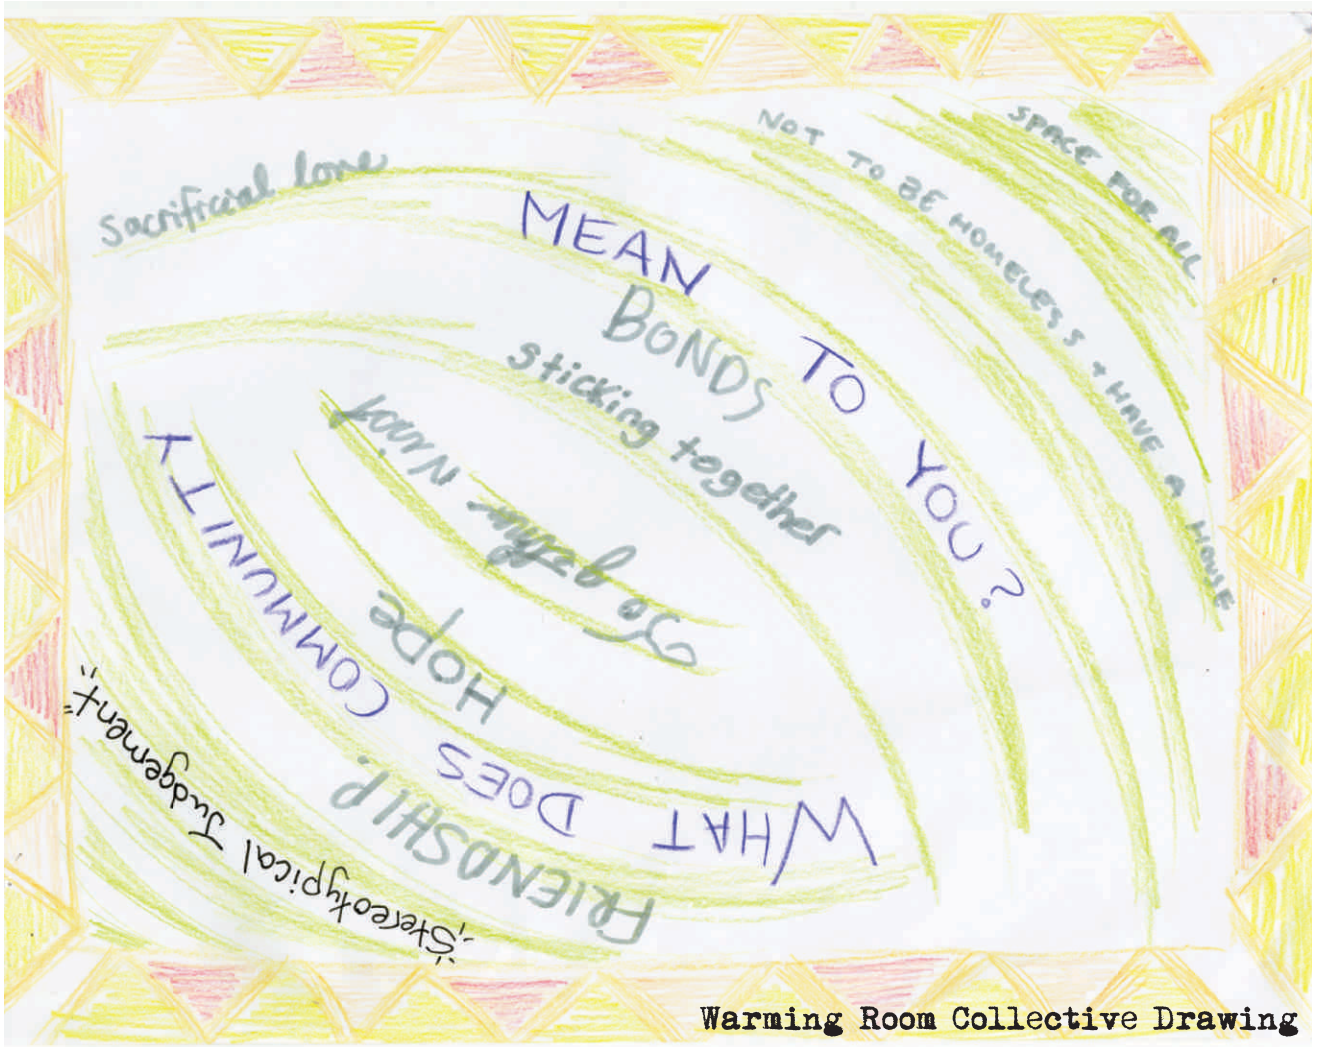 WHAT DOES COMMUNITY
MEAN TO YOU?
SPACE FOR ALL
NOT TO BE HOMELESS + HAVE A HOUSE
Sacrificial love
BONDS
sticking together
HOPE
FRIENDSHIP.
"Stereotypical Judgement"
Warming Room Collective Drawing